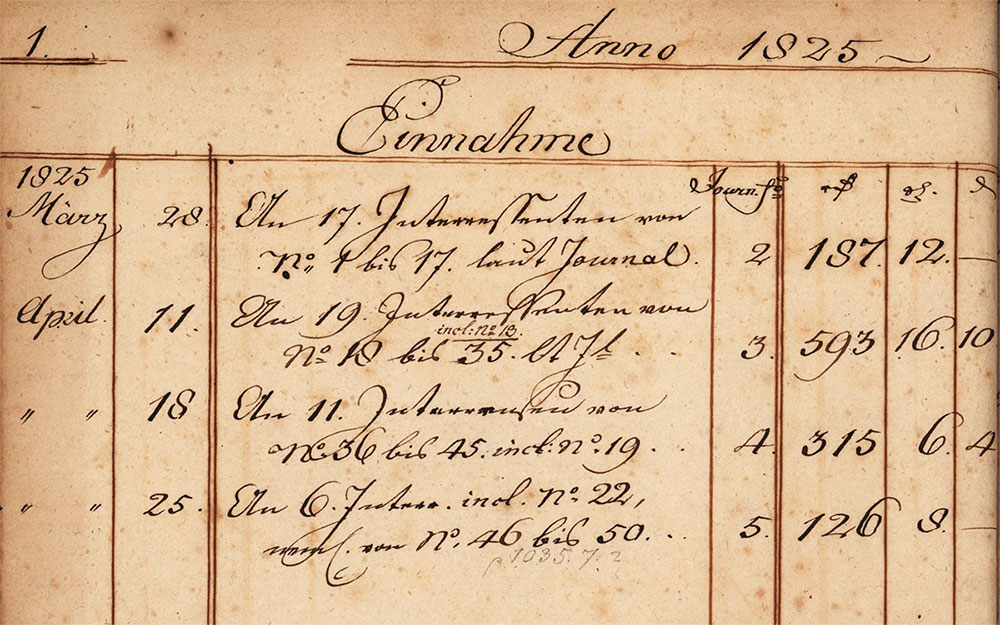 1. Anno 1825
Einnahme
1825 Journ. fo rth gl. d
März 28. An 17. Interressenten von
No. 1 bis 17. laut Journal. 2 187. 12. —
April 11. An 19. Interressenten von
incl: No 13.
No 18 bis 35. lt Jl . . 3. 593 16. 10
" " 18 An 11. Interressen von
No. 36 bis 45. incl: No. 19 . . 4. 315 6. 4
" " 25. An 6. Interr. incl. No. 22,
neml. von No. 46 bis 50. . . 5. 126 8. —
1035. 7. 2